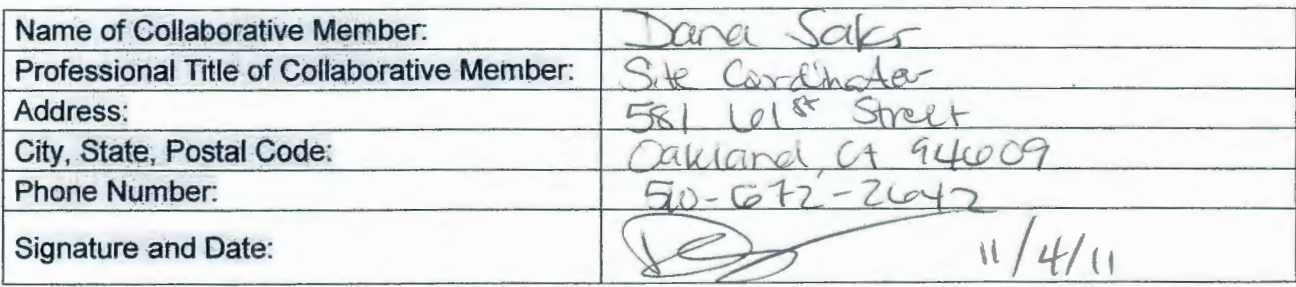 Name of Collaborative Member: Dana Saks
Professional Title of Collaborative Member: Site Cordinator
Address: 581 61st Street
City, State, Postal Code: Oakland, CA 94609
Phone Number: 510-672-2642
Signature and Date: 11/4/11